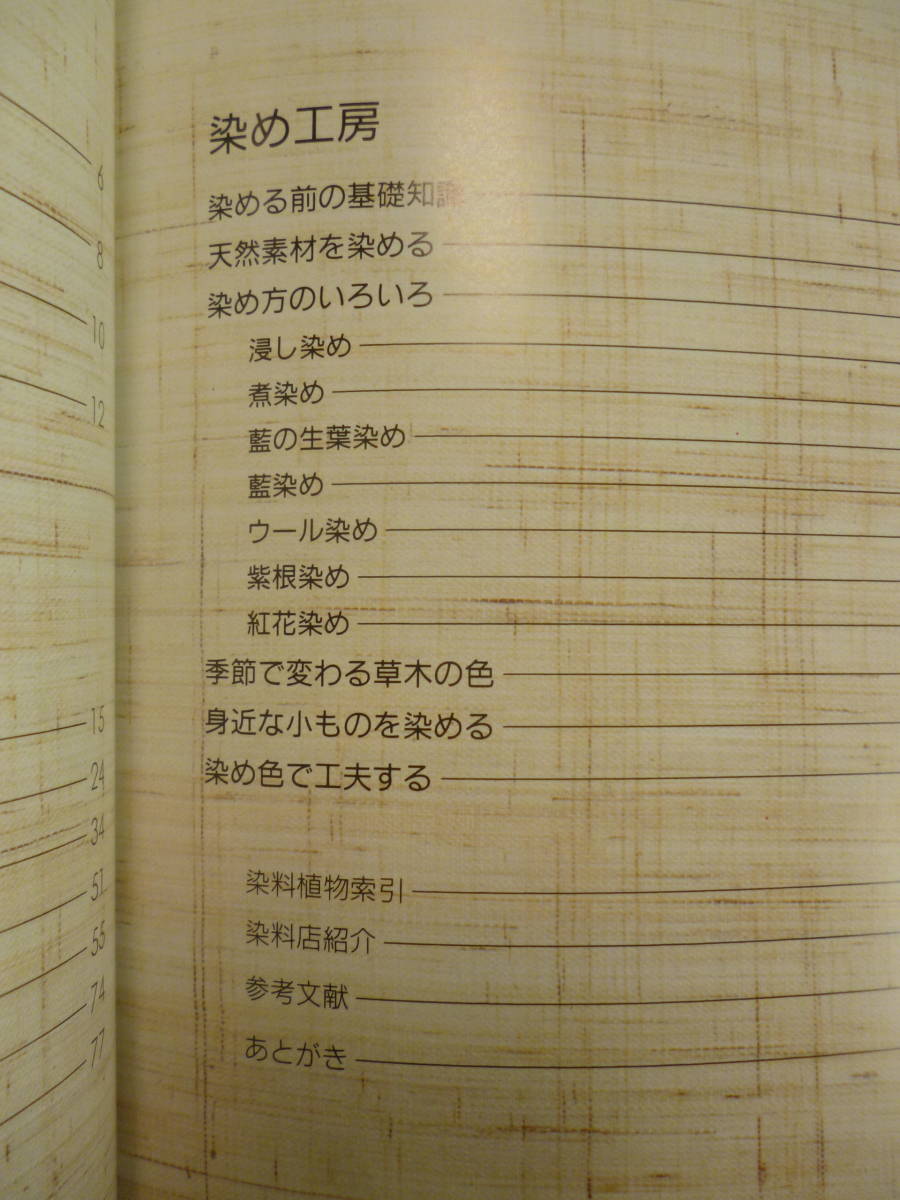 6
8
10
12
15
24
34
51
55
74
77
染め工房
染める前の基礎知識
天然素材を染める
染め方のいろいろ
浸し染め
煮染め
藍の生葉染め
藍染め
ウール染め
紫根染め
紅花染め
季節で変わる草木の色
身近な小ものを染める
染め色で工夫する
染料植物索引
染料店紹介
参考文献
あとがき